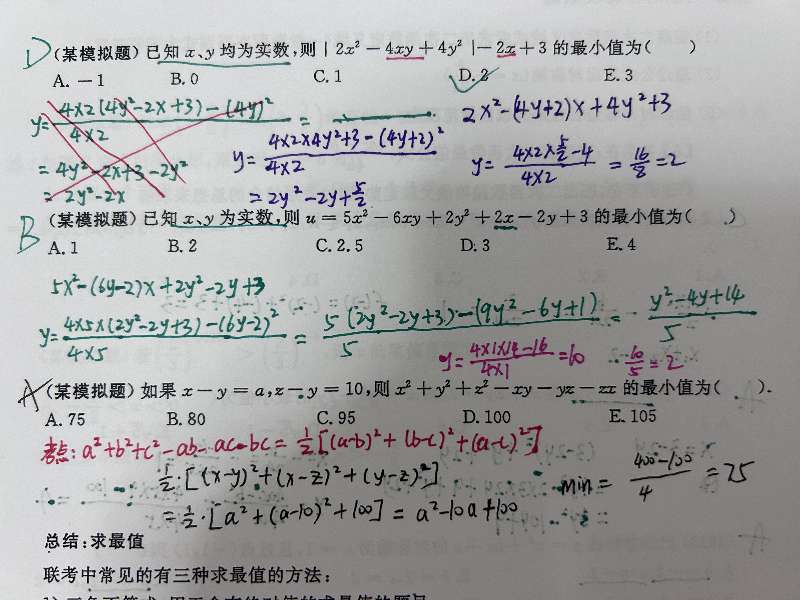 D (某模拟题)已知 x、y 均为实数,则 | 2x² − 4xy + 4y² | − 2x + 3 的最小值为( )
A. −1 B. 0 C. 1 D. 2 E. 3
y= 4×2(4y²-2x+3)-(4y)² / 4×2 =
= 4y²-2x+3-2y²
= 2y²-2x
y= 4×2×4y²+3-(4y+2)² / 4×2
= 2y²-2y+5/2
2x²-(4y+2)x+4y²+3
y= 4×2×5/2-4 / 4×2 = 16/8 =2
B (某模拟题)已知 x、y 为实数,则 u = 5x² − 6xy + 2y² + 2x − 2y + 3 的最小值为( )
A. 1 B. 2 C. 2.5 D. 3 E. 4
5x²-(6y-2)x+2y²-2y+3
y= 4×5×(2y²-2y+3)-(6y-2)² / 4×5 = 5(2y²-2y+3)-(9y²-6y+1) / 5 = y²-4y+14 / 5
y= 4×1×14-16 / 4×1 =10 10/5 =2
A (某模拟题)如果 x − y = a,z − y = 10,则 x² + y² + z² − xy − yz − zx 的最小值为( ).
A. 75 B. 80 C. 95 D. 100 E. 105
考点: a²+b²+c²-ab-ac-bc= 1/2[(a-b)²+(b-c)²+(a-c)²]
1/2·[(x-y)²+(x-z)²+(y-z)²]
= 1/2·[a²+(a-10)²+100] = a²-10a+100
min= 400-100 / 4 =75
总结:求最值
联考中常见的有三种求最值的方法: